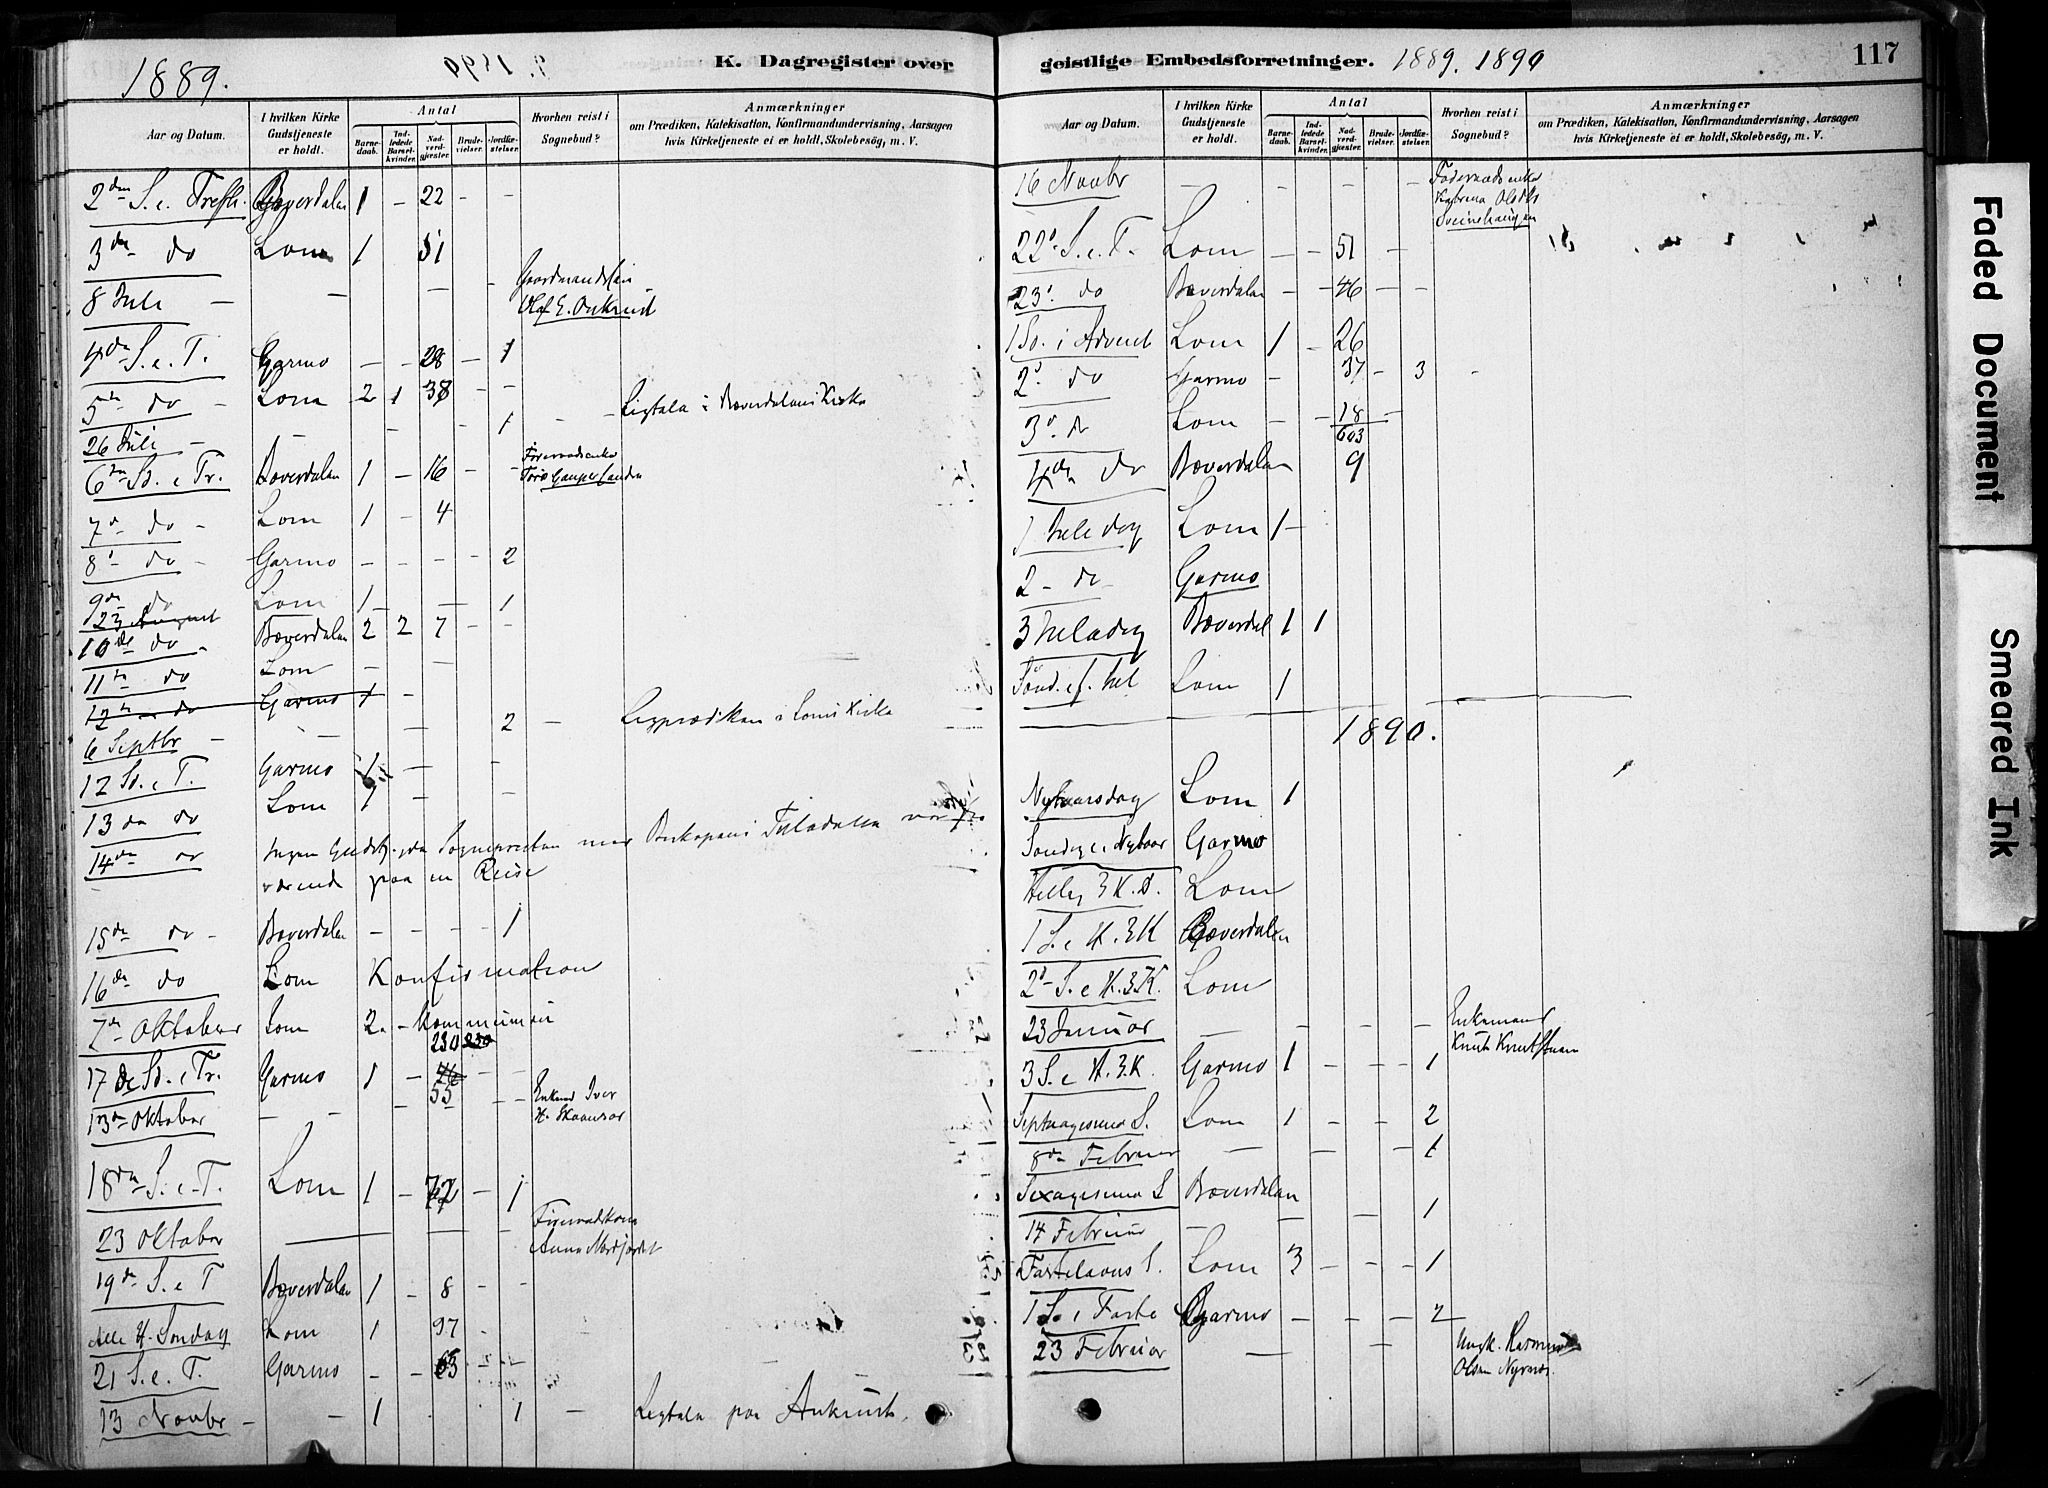 1889.
K. Dagregister over
Aar og Datum.
I hvilken Kirke Gudstjeneste er holdt.
Antal
Barnedaab.
Indledede Barselkvinder.
Nadverdgjester.
Brudevielser.
Jordfæstelser.
Hvorhen reist i Sognebud?
Anmærkninger
om Prædiken, Katekisation, Konfirmandundervisning, Aarsagen
hvis Kirketjeneste ei er holdt, Skolebesøg, m. V.
2den S. e. Trefh. Bæverdalen 1 - 22 - -
3die do Lom 1 51
8 Juli - - - - Gaardmandsføn
Olaf E.
4de S. e. T. Garmo - - 28 - 1
5te do - Lom 2 1 38 - -
26 Juli - - - 1 - - Ligtale i Bæverdalens Kirke
6te Sø. e Tr. Bæverdalen 1 - 16 - -
7de do - Lom 1 - 4
8de do - Garmo - - - - 2
9de do Lom 1 - - 1
23 August
10de do Bæverdalen 2 2 7 - -
11te do Lom - -
12te do Garmo 1 -
6 Septbr - - - 2 - Ligprædiken i Loms Kirke
12 Sø. e T. Garmo 1 - -
13de do Lom 1 - -
14de do Ingen Gudstj. da Sognepresten med Biskopens Tilladelse var fra
værende paa en Reise
15de do - Bæverdalen - - - - 1
16de do Lom Konfirmation
7de Oktober Lom 2 - Kommunion
230 230
17de Sø. e Tr. Garmo 1 - 55 - -
13de Oktober - - - - - Enkemd Iver
H.
18de S. e. T. Lom 1 - 72 - 1
23 Oktober - - -
Anna Nordjordet
19de S. e T Bæverdalen 1 - 8 - -
Alle H. Søndag Lom 1 97 -
21 S. e. T. Garmo - - 63 - -
13 Novbr - - 1 1 - Ligtale paa Aukrust.
geistlige Embedsforretninger. 1889. 1890
117
Aar og Datum.
I hvilken Kirke Gudstjeneste er holdt.
Antal
Barnedaab.
Indledede Barselkvinder.
Nadverdgjester.
Brudevielser.
Jordfæstelser.
Hvorhen reist i Sognebud?
Anmærkninger
om Prædiken, Katekisation, Konfirmandundervisning, Aarsagen
hvis Kirketjeneste ei er holdt, Skolebesøg, m. V.
16 Novbr - - - - Føderaadsenke
Katrina Olsdtr
Sveinehaugen
22d S. e. T. Lom - - 51 -
23d do Bæverdalen - - 46 - -
1 Sø. i Advent Lom 1 - 26
2d do Garmo - 37 - 3 -
3d do Lom - - 18 -
603
4de do Bæverdalen 9
1 Juledag Lom 1 -
2 - do Garmo
3 Juledag Bæverdal 1 1
Sønd. ef. Jul Lom 1
1890.
Nytaarsdag Lom 1
Søndag e. Nytaar Garmo
Hellig 3 K. D. Lom
1 S. e H. 3 K Bæverdalen
2d S. e H. 3. K. Lom
23 Januar - - - - - Enkemand
Knut Knutsen
3 S. e H. 3. K. Garmo 1 - - 1
Septuagesima S. Lom 1 - - 2
8de Februar - - - 1
Sexagesima S Bæverdalen
14 Februar - - - 1
Fastelavns S. Lom 3 - - - 1
1 S. i Faste Garmo - - - - 2
23 Februar - - Ungk. Rasmus
Olsen
Faded Document
Smeared Ink